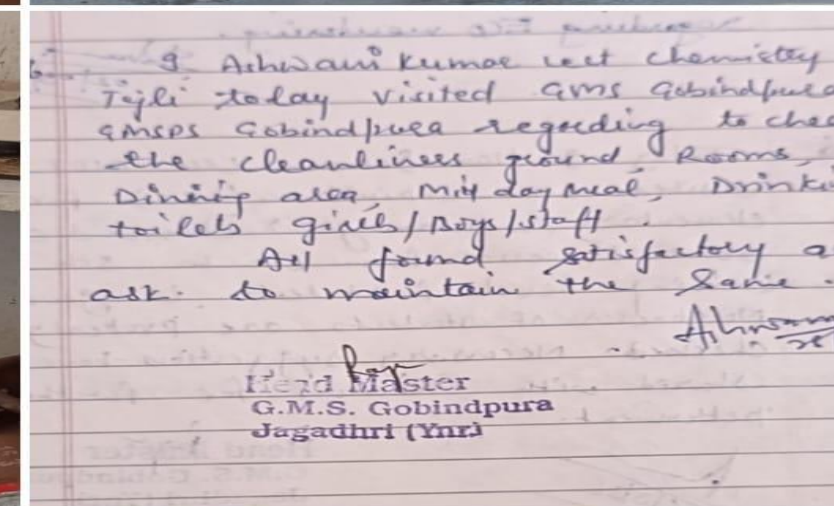 I Ashwani Kumar lect chemistry
Tejli today visited GMS Gobindpura
GMSPS Gobindpura regarding to chec
the cleanliness ground, Rooms,
Dining area, Mid day meal, Drinki
toilets girls/Boys/staff.
All found satisfactory a
ask. to maintain the same.
Ashwani
Head Master
G.M.S. Gobindpura
Jagadhri (Ynr)